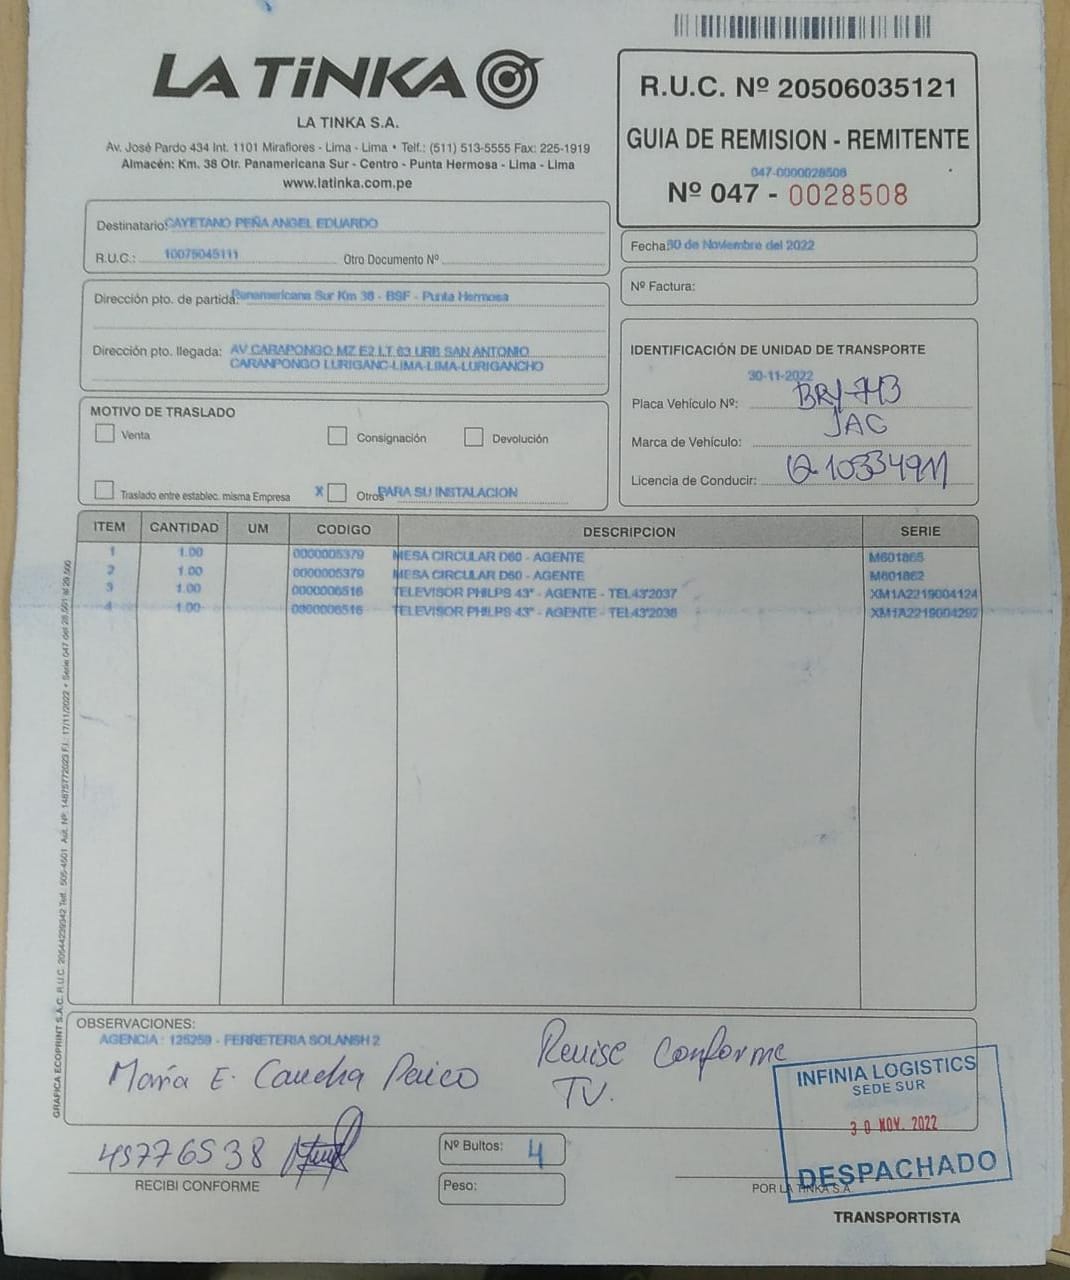 LA TiNKA
LA TINKA S.A.
Av. José Pardo 434 Int. 1101 Miraflores - Lima - Lima • Telf.: (511) 513-5555 Fax: 225-1919
Almacén: Km. 38 Otr. Panamericana Sur - Centro - Punta Hermosa - Lima - Lima
www.latinka.com.pe
R.U.C. Nº 20506035121
GUIA DE REMISION - REMITENTE
047-0000028508
Nº 047 - 0028508
Destinatario: CAYETANO PEÑA ANGEL EDUARDO
R.U.C.: 10075045111 Otro Documento Nº
Fecha: 30 de Noviembre del 2022
Nº Factura:
Dirección pto. de partida: Panamericana Sur Km 38 - BSF - Punta Hermosa
Dirección pto. llegada: AV CARAPONGO MZ E2 LT 03 URB SAN ANTONIO
CARANPONGO LURIGANC-LIMA-LIMA-LURIGANCHO
IDENTIFICACIÓN DE UNIDAD DE TRANSPORTE
30-11-2022
Placa Vehículo Nº:
Marca de Vehículo: JAC
Licencia de Conducir: Q10334911
MOTIVO DE TRASLADO
Venta Consignación Devolución
Traslado entre establec. misma Empresa X Otros PARA SU INSTALACION
ITEM CANTIDAD UM CODIGO DESCRIPCION SERIE
1 1.00 0000005379 MESA CIRCULAR D60 - AGENTE M601865
2 1.00 0000005379 MESA CIRCULAR D60 - AGENTE M601862
3 1.00 0000006516 TELEVISOR PHILPS 43" - AGENTE - TEL43'2037 XM1A2219004124
4 1.00 0000006516 TELEVISOR PHILPS 43" - AGENTE - TEL43'2038 XM1A2219004292
GRAFICA ECOPRINT S.A.C. R.U.C. 20544239342 Telf. 505-4501 Aut. Nº: 14875772023 F.I.: 17/11/2022 • Serie 047 del 28,501 al 29,500
OBSERVACIONES:
AGENCIA : 125259 - FERRETERIA SOLANSH 2
María E. Caucha Paico
Revise Conforme
TV.
INFINIA LOGISTICS
SEDE SUR
30 NOV. 2022
DESPACHADO
45776538
RECIBI CONFORME
Nº Bultos: 4
Peso:
POR LA TINKA S.A.
TRANSPORTISTA